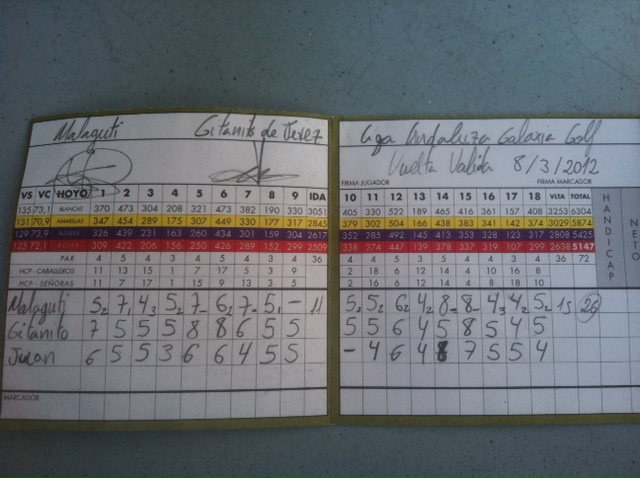 Malaguti Gitanito de Jerez
Liga Andaluza Galaxia Golf
Vuelta Valida 8/3/2012
FIRMA JUGADOR FIRMA MARCADOR
VS VC HOYO 1 2 3 4 5 6 7 8 9 IDA 10 11 12 13 14 15 16 17 18 VLTA TOTAL HANDICAP NETO
135 73,1 BLANCAS 370 473 304 208 321 473 382 190 330 3051 405 330 522 189 465 416 361 157 408 3253 6304
131 70,9 AMARILLAS 347 454 289 175 307 449 330 177 317 2845 379 302 504 166 438 383 341 142 374 3029 5874
129 73,9 AZULES 326 439 231 163 260 434 301 159 304 2617 352 285 492 145 412 353 328 123 317 2808 5425
125 72,1 309 422 206 156 250 426 289 152 299 2509 338 274 447 139 378 337 319 107 299 2638 5147
PAR 4 5 4 3 4 5 4 3 4 36 4 4 5 3 5 4 4 3 4 36 72
HCP - CABALLEROS 11 13 15 1 7 17 5 3 9 2 18 6 12 14 4 10 16 8
HCP - SEÑORAS 11 7 17 1 15 9 13 3 5 2 16 6 12 14 4 8 18 10
Malaguti 5 7 4 5 7 6 7 5 - 11 5 5 6 4 8 8 4 4 5 15 26
Gitanito 7 5 5 5 8 8 6 5 5 5 5 6 4 5 8 5 4 5
Juan 6 5 5 3 6 6 4 5 5 - 4 6 4 8 7 5 5 4
MARCADOR